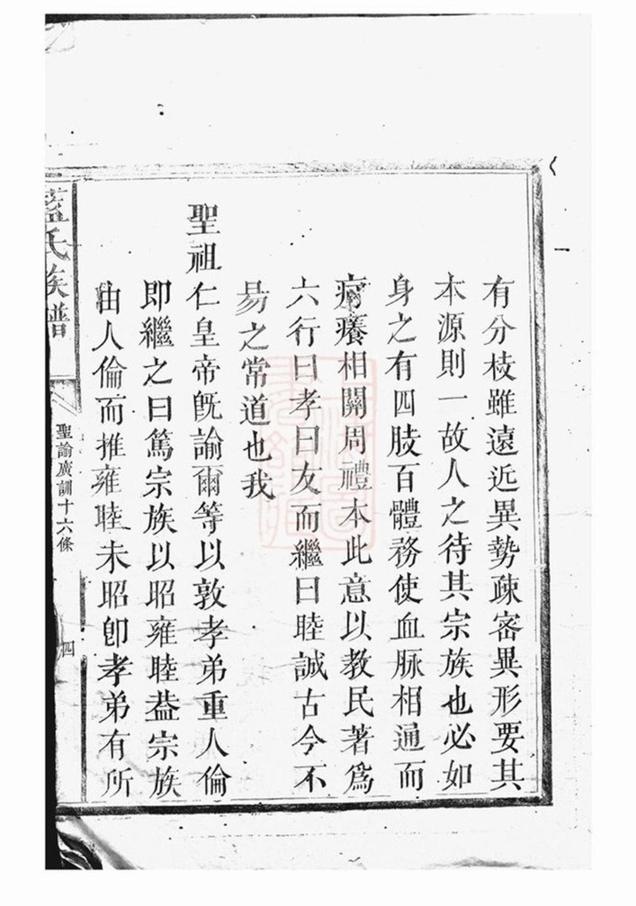 有分枝雖遠近異勢疎宻異形要其
本源則一故人之待其宗族也必如
身之有四肢百體務使血脉相通而
痾癢相關周禮本此意以教民著爲
六行曰孝曰友而繼曰睦誠古今不
易之常道也我
聖祖仁皇帝旣諭爾等以敦孝弟重人倫
即繼之曰篤宗族以昭雍睦葢宗族
由人倫而推雍睦未昭卽孝弟有所
藍氏族譜
聖諭廣訓十六條
四